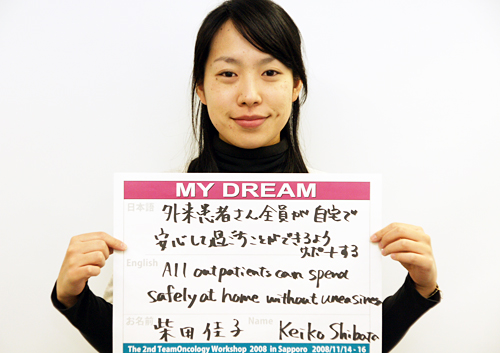 MY DREAM
日本語
外来患者さん全員が自宅で
安心して過ごすことができるよう
サポートする
English
All outpatients can spend
safely at home without uneasiness
お名前 柴田佳子 Name Keiko Shibata
The 2nd TeamOncology Workshop 2008 in Sapporo 2008/11/14 - 16